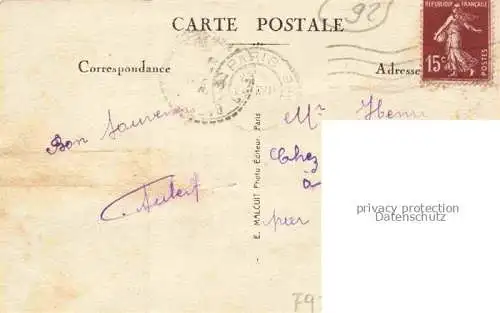 (92)
CARTE POSTALE
Correspondance
Adresse
REPUBLIQUE FRANÇAISE
15c
POSTES
PARIS
Bon Souvenir
Mr Henri
Chez
à
par
E. MALCUIT Photo Editeur, Paris
privacy protection
Datenschutz